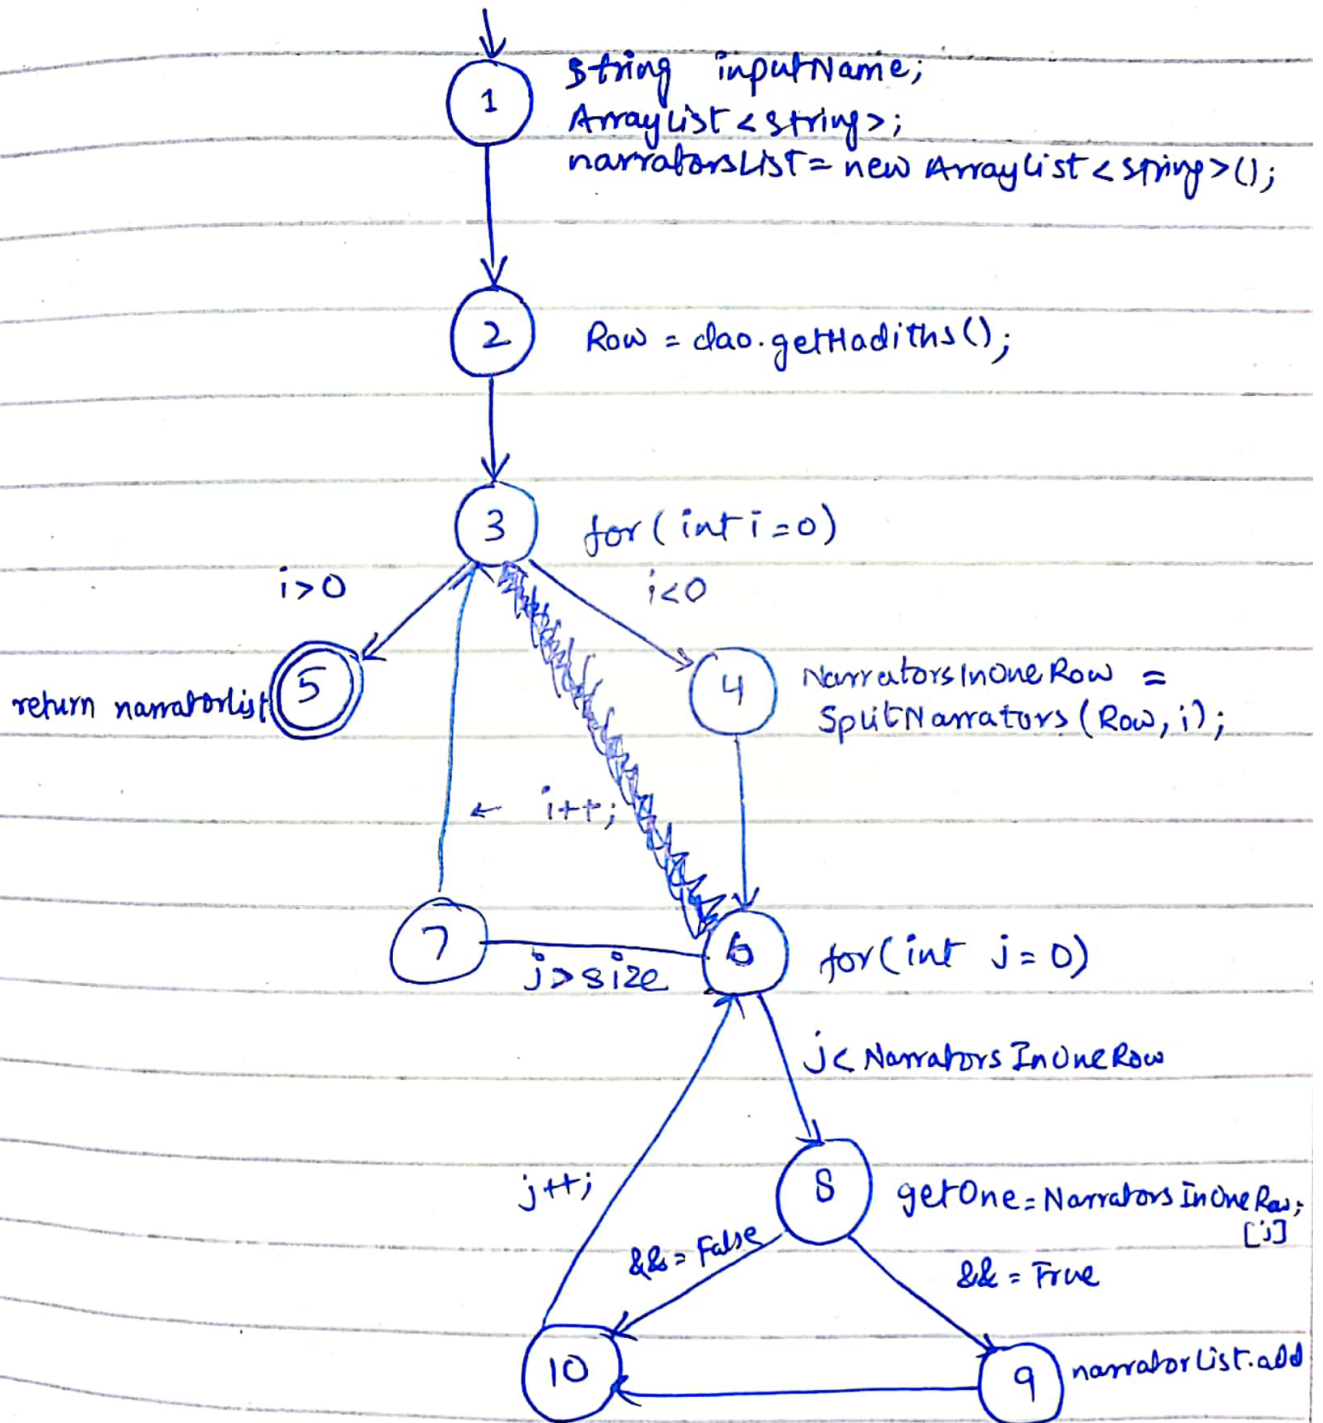 1
String inputName;
ArrayList<String>;
narratorsList = new ArrayList<String>();
2
Row = dao.getHadiths();
3
for(int i=0)
i>0
i<0
5
return narratorlist
4
NarratorsInOneRow =
SplitNarrators(Row, i);
← i++;
7
j>size
6
for(int j=0)
j< NarratorsInOneRow
j++;
8
getOne=NarratorsInOneRow;
[j]
&&=False
&& = True
10
9
narratorlist.add